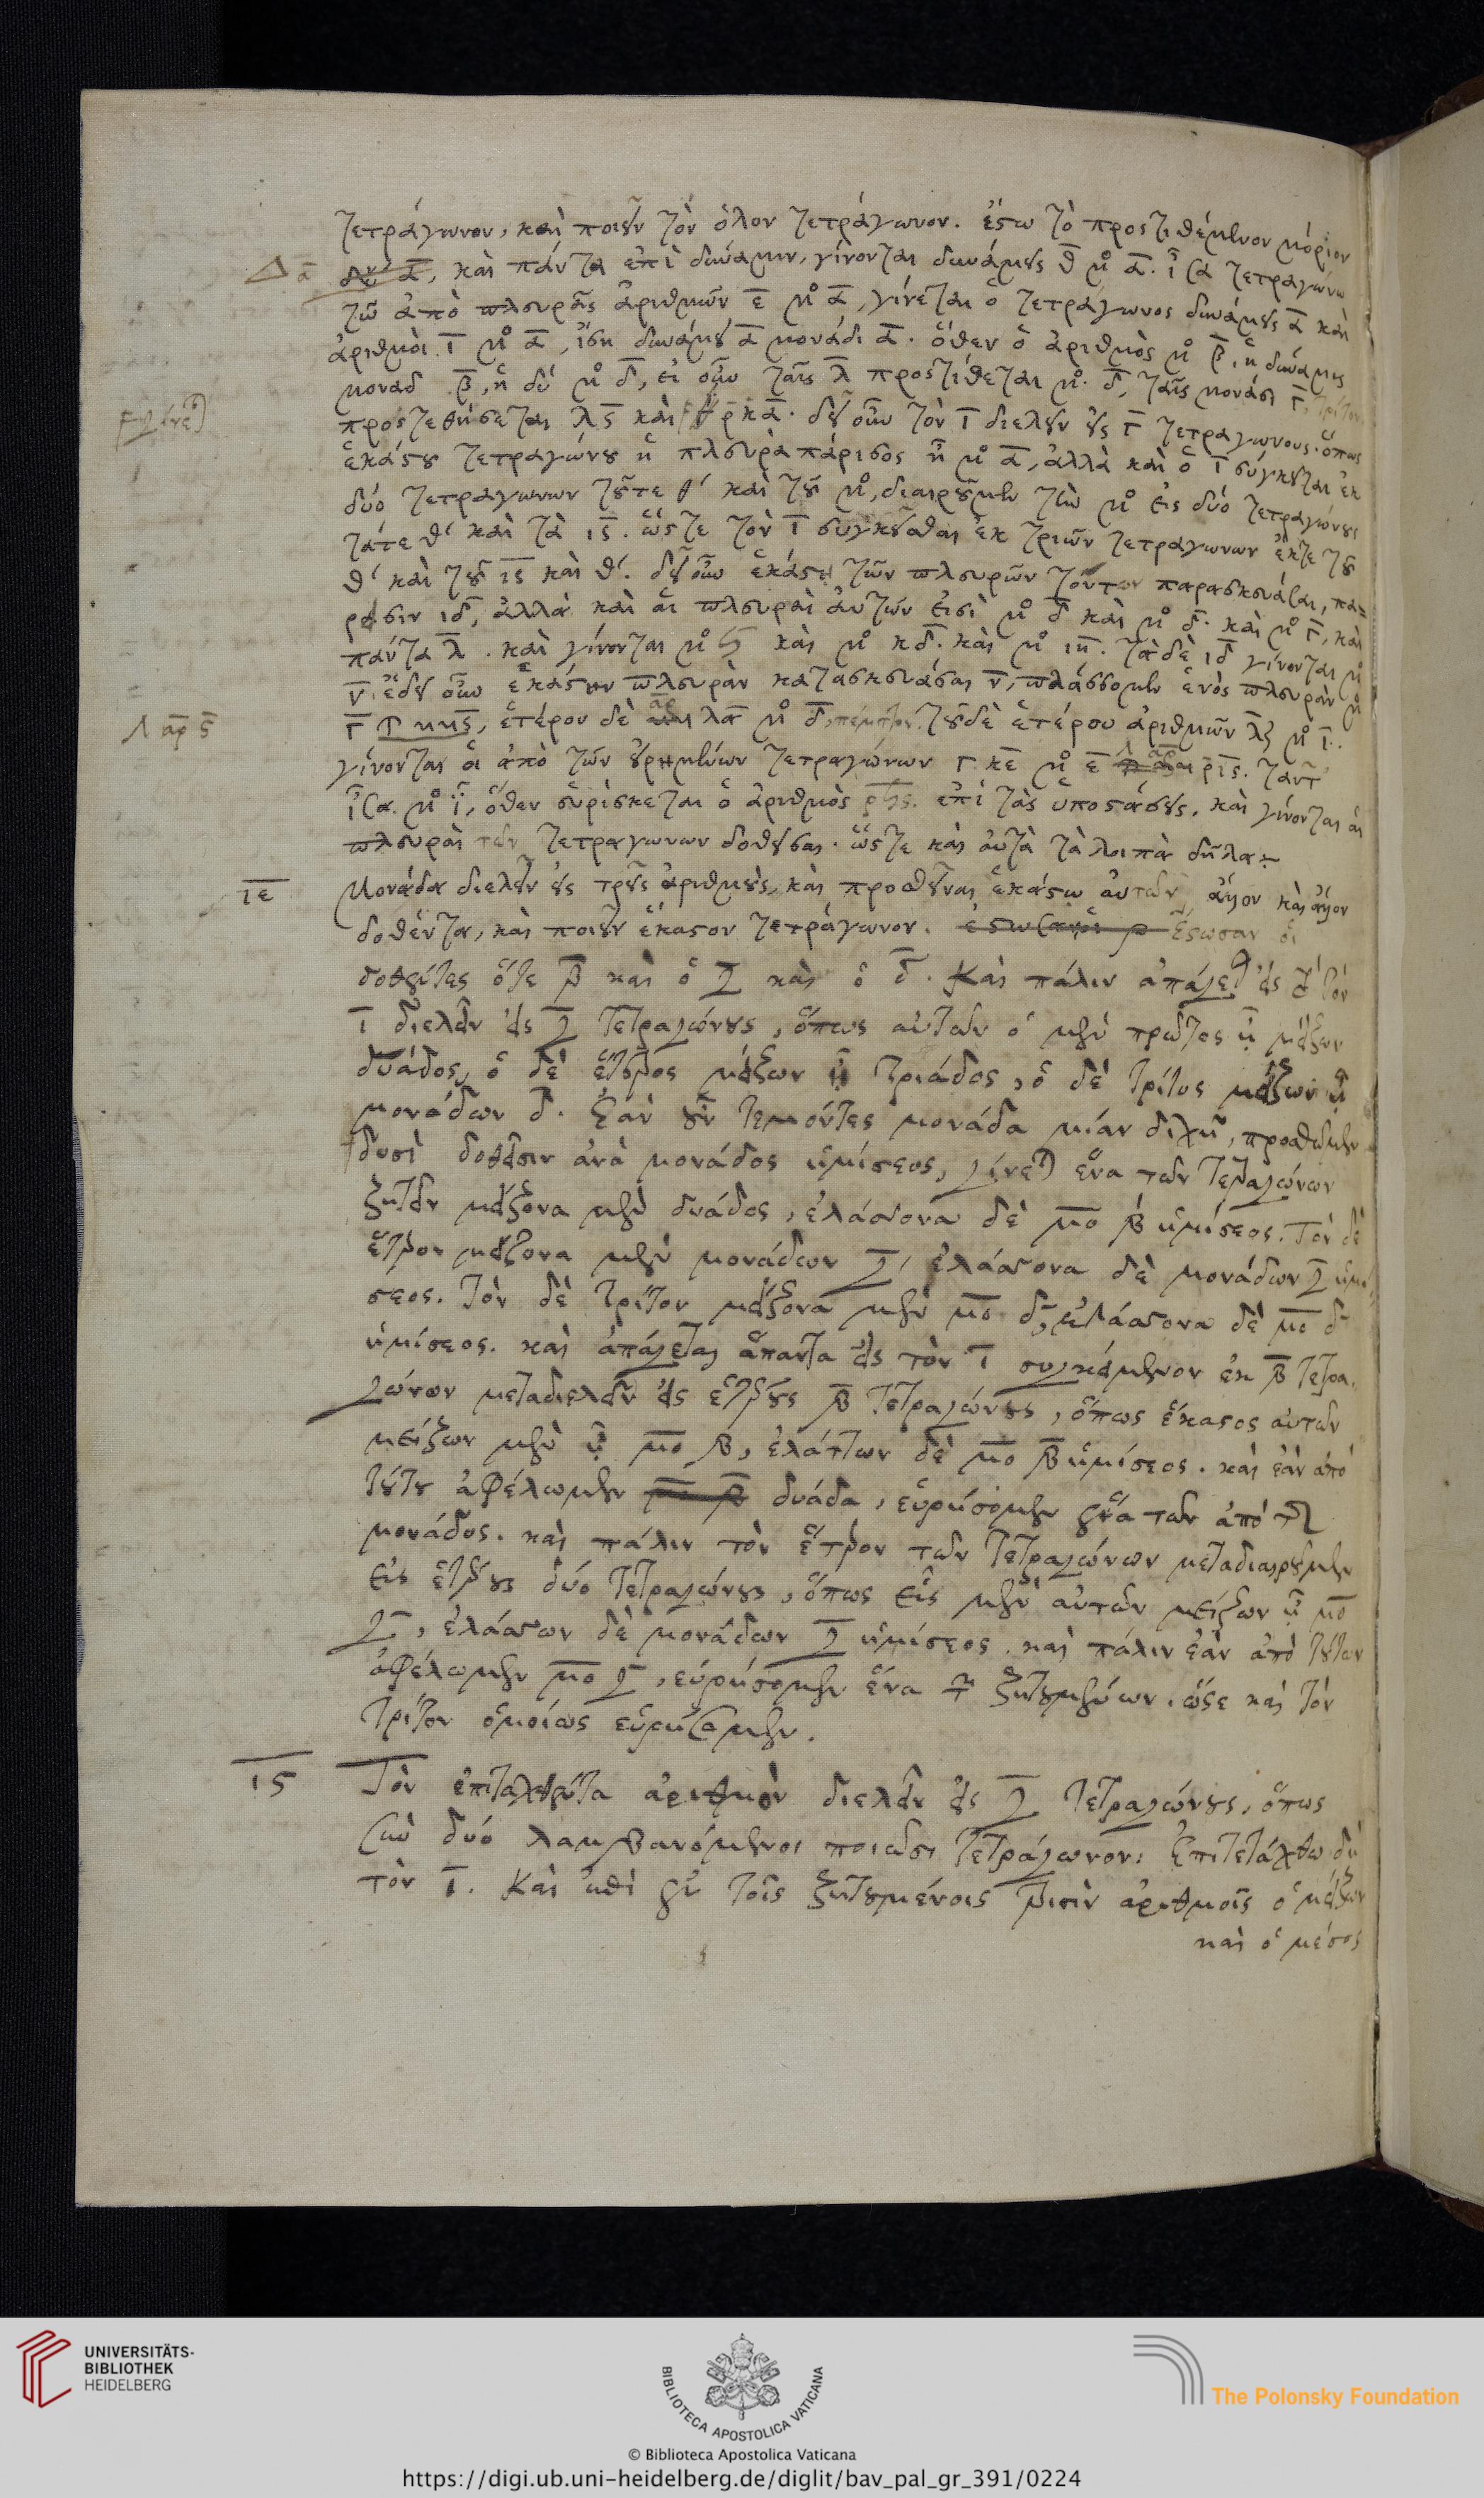 τετράγωνον, καὶ ποιεῖν τὸν ὅλον τετράγωνον. ἔστω τὸ προστιθέμενον μόριον
Δ ᾱ δυ ᾱ, καὶ πάντα ἐπὶ δύναμιν, γίνονται δυνάμεις θ̄ μο ᾱ. ἴσα τετραγώνω
τῶ ἀπὸ πλευρᾶς ἀριθμῶν ε̄ μο ᾱ, γίνεται ὁ τετράγωνος δυνάμεις
ἀριθμοὶ ῑ μο ᾱ, ἴση δυνάμει ᾱ μονάδι ᾱ. ὅθεν ὁ ἀριθμὸς μο β̄, ἡ δύναμις
μοναδ β̄, ἡ δυ μο δ̄, εἰ οὖν ταῖς λ̄ προστίθεται μο δ̄, ταῖς μονάσι γ̄
προστεθήσεται λς̄ καὶ ρκᾱ. δεῖ οὖν τὸν ῑ διελεῖν εἰς γ̄ τετραγώνους. ὅπως
ἑκάστου τετραγώνου ἡ πλευρὰ πάρισος ἦ μο ᾱ, ἀλλὰ καὶ ὁ ῑ σύγκειται ἐκ
δύο τετραγώνων τοῦτε θ' καὶ τοῦ μο, διαιροῦμεν τὴν μο εἰς δύο τετραγώνους
τάτε θ' καὶ τὰ ις̄. ὥστε τὸν ῑ συγκεῖσθαι ἐκ τριῶν τετραγώνων ἔκτε τοῦ
θ' καὶ τοῦ ις̄ καὶ θ'. δεῖ οὖν ἑκάστη τῶν πλευρῶν τούτων παρασκευάσαι, πα=
ρισιν ιδ̄, ἀλλὰ καὶ αἱ πλευραὶ αὐτῶν εἰσὶ μο δ̄ καὶ μο δ̄. καὶ μο γ̄, καὶ
πάντα λ̄. καὶ γίνονται μο καὶ μο κδ̄. καὶ μο ιη̄. τὰ δὲ ιδ̄ γίνονται μο
ν̄. ἔδει οὖν ἑκάστην πλευρὰν κατασκευάσαι ν̄, πλάσσομεν ἑνὸς πλευρὰν μο
Λ αρ ς̄ γ̄ ἑτέρου δὲ λᾱ μο δ̄, πέμπτον τοῦδε ἑτέρου ἀριθμῶν λζ̄ μο ῑ.
γίνονται οἱ ἀπὸ τῶν εἰρημένων τετραγώνων γ κε̄ μο ε̄ ρις̄. ταῦτ'
ἴσα μο ῑ, ὅθεν εὑρίσκεται ὁ ἀριθμὸς ἐπὶ τὰς ὑποστάσεις, καὶ γίνονται αἱ
πλευραὶ τῶν τετραγώνων δοθεῖσαι. ὥστε καὶ αὐτὰ τὰ λοιπὰ δῆλα:~
ιε̄ Μονάδα διελεῖν εἰς τρεῖς ἀριθμοὺς, καὶ προσθεῖναι ἑκάστω αὐτῶν ἄλλον καὶ ἄλλον
δοθέντα, καὶ ποιεῖν ἕκαστον τετράγωνον. Ἔστωσαν οἱ
δοθέντες ὅτε β̄ καὶ ὁ γ̄ καὶ ὁ δ̄. Καὶ πάλιν ἀπάγεται εἰς τὸ τὸν
ῑ διελεῖν εἰς γ̄ τετραγώνους, ὅπως αὐτῶν ὁ μὲν πρῶτος ἦ μείζων
δυάδος, ὁ δὲ ἕτερος μείζων ἦ τριάδος, ὁ δὲ τρίτος μείζων ἦ
μονάδων δ̄. Ἐὰν οὖν τεμόντες μονάδα μίαν δίχῆ, προσθῶμεν
δυσὶ δοθεῖσιν ἀνὰ μονάδος ἡμίσεος, γίνεται ἕνα τῶν τετραγώνων
ζητεῖν μείζονα μὲν δυάδος, ἐλάσσονα δὲ μ̄ο β̄ ἡμίσεος. Τὸν δὲ
ἕτερον μείζονα μὲν μονάδων γ̄, ἐλάσσονα δὲ μονάδων γ̄ ἡμι
σεος. Τὸν δὲ τρίτον μείζονα μὲν μ̄ο δ̄, ἐλάσσονα δὲ μ̄ο δ̄
ἡμίσεος. καὶ ἀπάγεται ἅπαντα εἰς τὸν ῑ συγκείμενον ἐκ β̄ τετρα
γώνων μεταδιελεῖν εἰς ἑτέρους β̄ τετραγώνους, ὅπως ἕκαστος αὐτῶν
μείζων μὲν ἦ μ̄ο β̄, ἐλάττων δὲ μ̄ο β̄ ἡμίσεος. καὶ ἐὰν ἀπὸ
τούτου ἀφέλωμεν δυάδα, εὑρήσομεν ἕνα τῶν ἀπὸ τῆς
μονάδος. καὶ πάλιν τὸν ἕτερον τῶν τετραγώνων μεταδιαιροῦμεν
εἰς ἑτέρους δύο τετραγώνους, ὅπως εἷς μὲν αὐτῶν μείζων ἦ μ̄ο
γ̄, ἐλάσσων δὲ μονάδων γ̄ ἡμίσεος. καὶ πάλιν ἐὰν ἀπὸ τούτων
ἀφέλωμεν μ̄ο γ̄, εὑρήσομεν ἕνα τῶν ζητουμένων. ὥστε καὶ τὸν
τρίτον ὁμοίως εὑρήσομεν.
ις̄ Τὸν ἐπιταχθέντα ἀριθμὸν διελεῖν εἰς γ̄ τετραγώνους, ὅπως
σὺν δύο λαμβανόμενοι ποιῶσι τετράγωνον: Ἐπιτετάχθω δὴ
τὸν ῑ. Καὶ ἐπεὶ ἐν τοῖς ζητουμένοις τρισὶν ἀριθμοῖς ὁ μείζων
καὶ ὁ μέσος
UNIVERSITÄTS-
BIBLIOTHEK
HEIDELBERG
BIBLIOTECA APOSTOLICA VATICANA
The Polonsky Foundation
© Biblioteca Apostolica Vaticana
https://digi.ub.uni-heidelberg.de/diglit/bav_pal_gr_391/0224